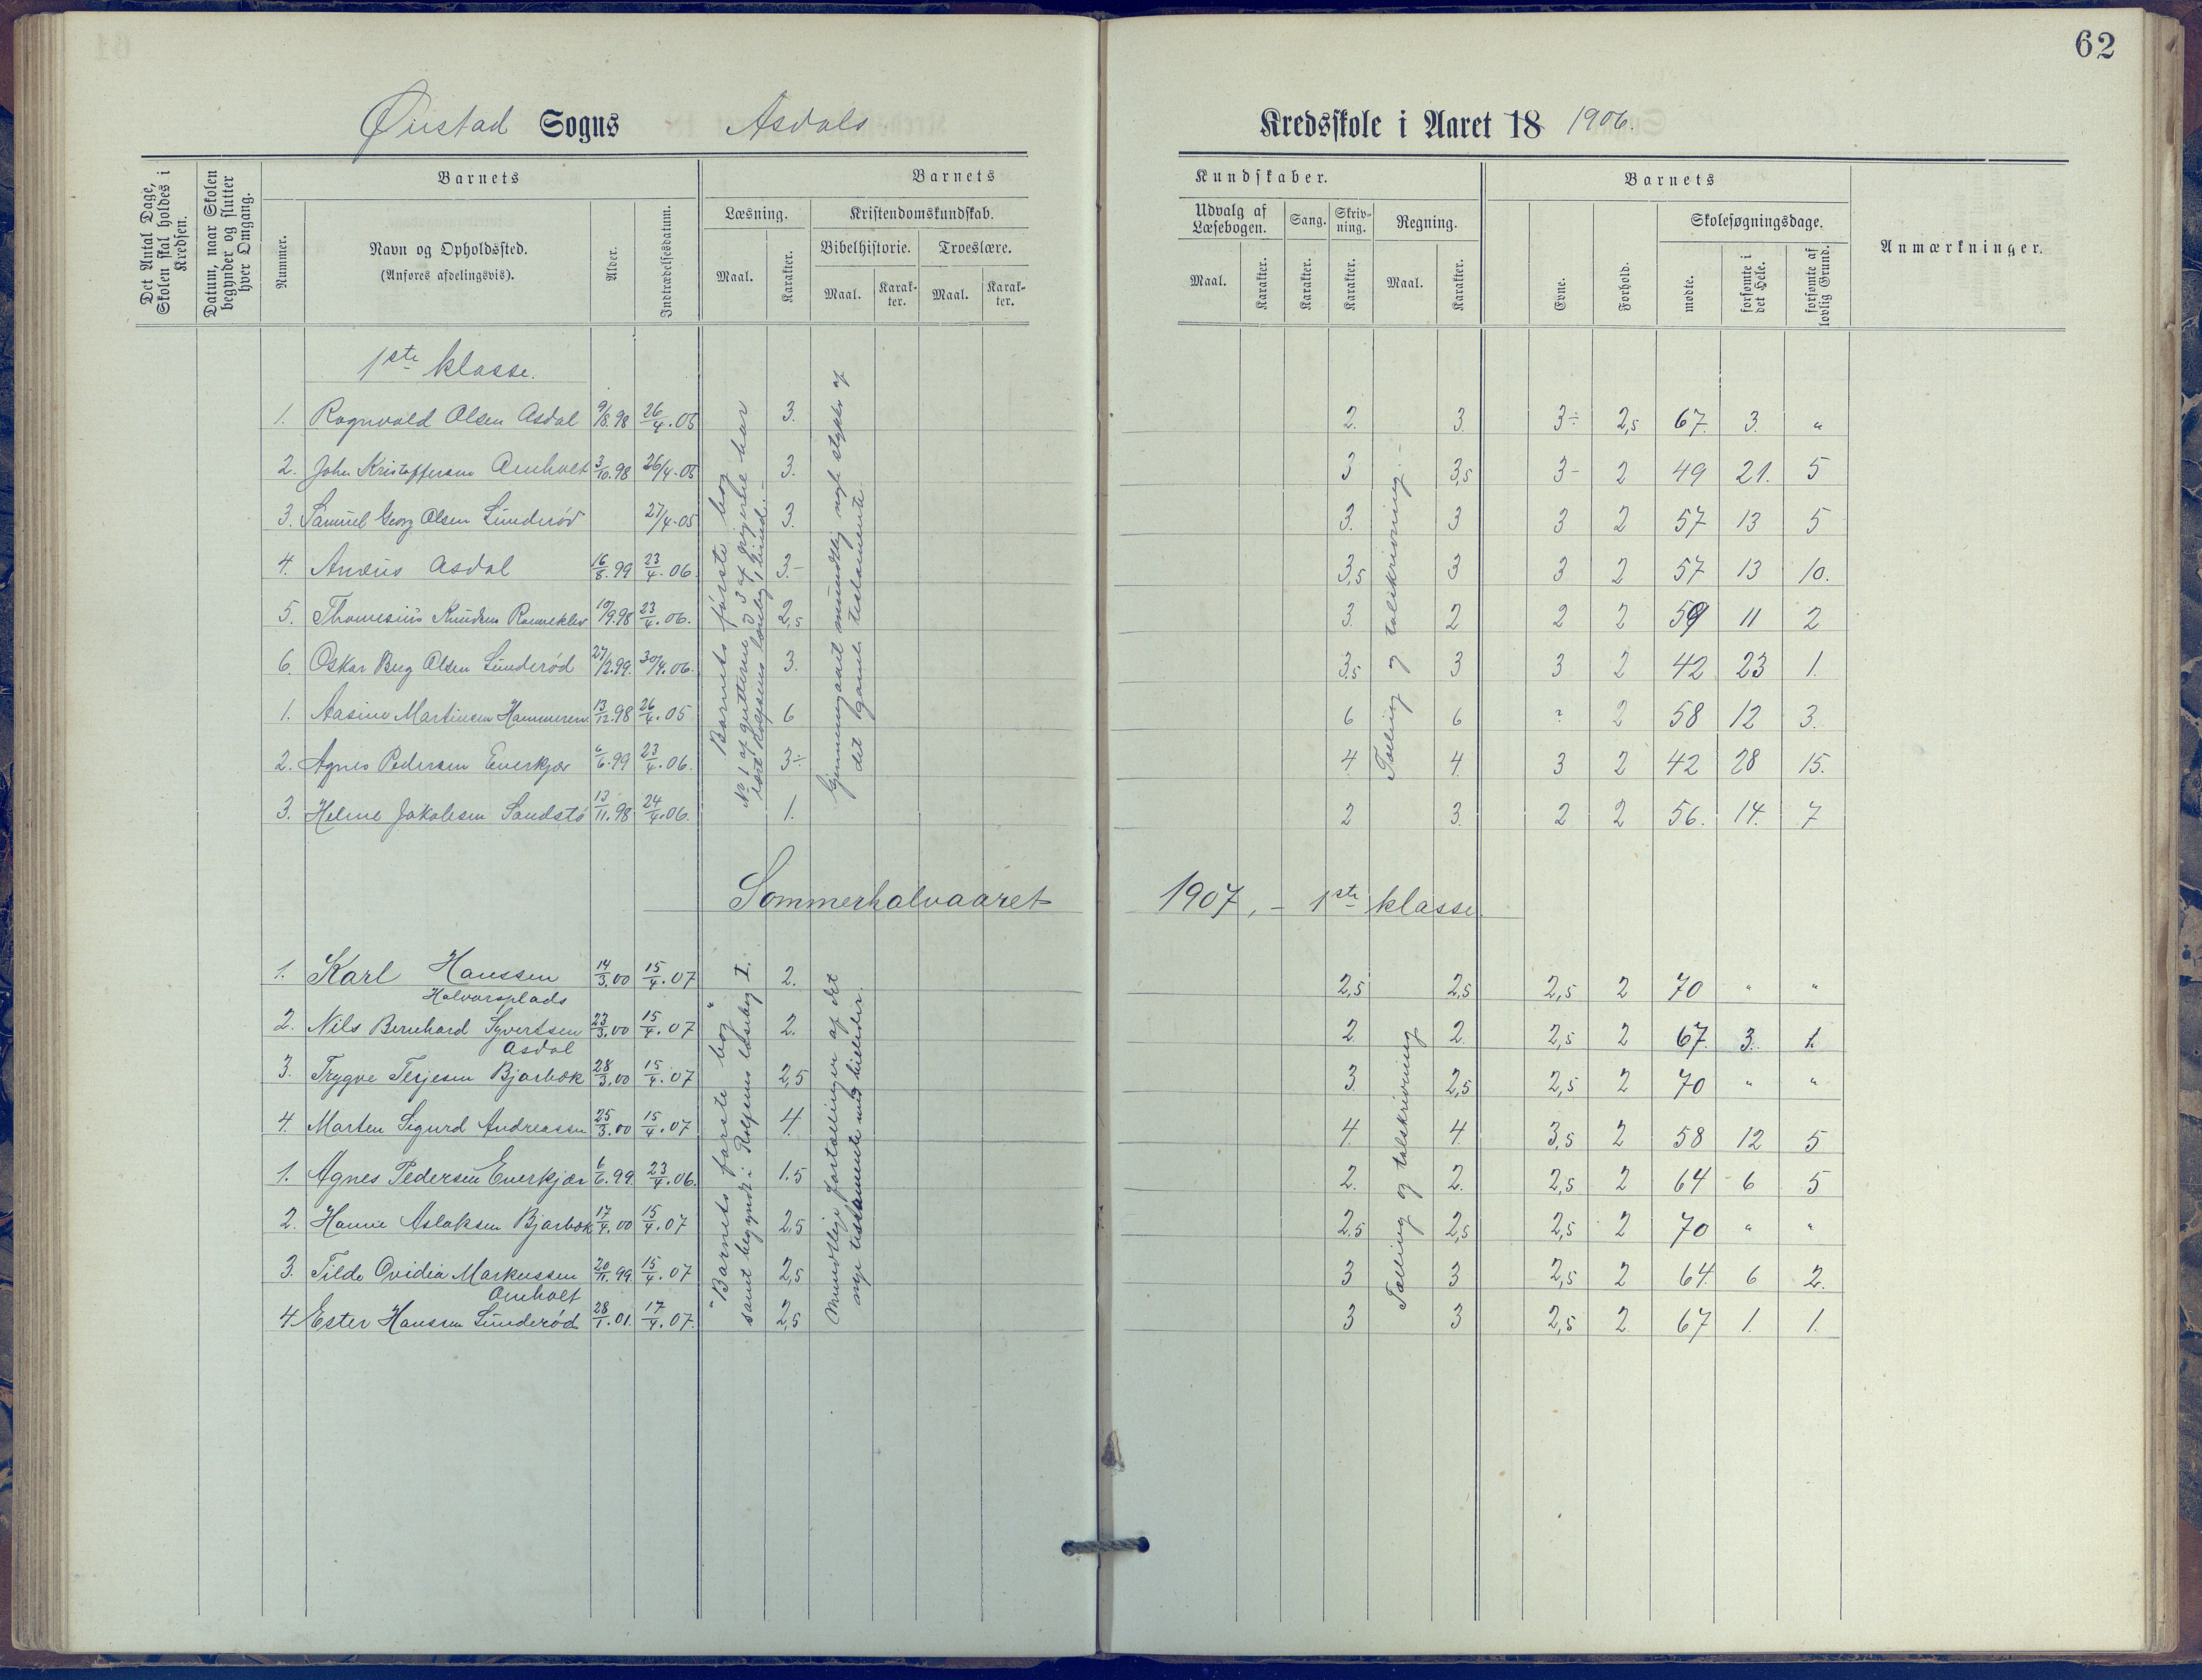 62
Øiestad Sogns Asdals Kredsskole i Aaret 18 1906.
Det Antal Dage, Skolen skal holdes i Kredsen.
Datum, naar Skolen begynder og slutter hver Omgang.
Barnets
Nummer.
Navn og Opholdssted.
(Anføres afdelingsvis).
Alder.
Indtrædelsesdatum.
Barnets
Læsning.
Maal.
Karakter.
Kristendomskundskab.
Bibelhistorie.
Maal.
Karak-
ter.
Troeslære.
Maal.
Karak-
ter.
Kundskaber.
Udvalg af
Læsebogen.
Maal.
Karakter.
Sang.
Karakter.
Skriv-
ning.
Karakter.
Regning.
Maal.
Karakter.
Barnets
Evne.
Forhold.
Skolesøgningsdage.
mødte.
forsømte i det Hele.
forsømte af lovlig Grund.
Anmærkninger.
1ste klasse.
1. Ragnvald Olsen Asdal 9/8.98 26/4.05 3. 2. 3. 3÷ 2,5 67. 3. "
2. John Kristoffersen Omholt 3/10.98 26/4.05 3. 3 3,5 3- 2 49 21. 5
3. Samuel Georg Olsen Lunderød 27/4.05 3. 3. 3 3 2 57 13 5
4. Anders Asdal 16/8.99 23/4.06 3- 3,5 3 3 2 57 13 10.
5. Thomesius Knudsen 19/9.98 23/4.06. 2,5 3. 2 2 2 59 11 2
6. Oskar Berg Olsen Lunderød 27/2.99. 30/4.06. 3. 3,5 3 3 2 42 23 1.
1. Aasine Martinsen 13/12.98 26/4.05 6 6 6 ? 2 58 12 3.
2. Agnes Pedersen Everkjær 6/6.99 23/4.06. 3÷ 4 4. 3 2 42 28 15.
3. Helene Jakobsen Sandstø 13/11.98 24/4.06. 1. 2 3. 2 2 56. 14. 7
Barnets første bog
No 1 af gutterne og 3 af pigerne har
læst Rolfsens læsebog 1 bind. -
Gjennemgaaet mundtlig nogle stykker af
det gamle testamente.
Tælling og talskrivning. -
Sommerhalvaaret 1907. - 1ste klasse.
1. Karl Hanssen 14/3.00 15/4.07 2. 2,5 2,5 2,5 2 70 " "
Halvorsplads
2. Nils Bernhard Syvertsen 23/3.00 15/4.07 2. 2. 2. 2,5 2 67. 3. 1.
Asdal
3. Trygve Terjesen Bjorbæk 28/3.00 15/4.07 2,5 3. 2,5 2,5 2 70 " "
4. Marten Sigurd Andreassen 25/3.00 15/4.07 4. 4. 4. 3,5 2 58 12 5
1. Agnes Pedersen Everkjær 6/6.99. 23/4.06. 1.5 2. 2. 2,5 2 64 6 5
2. Hanne Aslaksen Bjorbæk 17/4.00 15/4.07 2,5 2,5 2,5 2,5 2 70 " "
3. Tilda Ovidia Markussen 20/11.99. 15/4.07 2,5 3 3 2,5 2 64. 6 2.
Omholt
4. Ester Hanssen Lunderød 28/1.01. 17/4.07. 2,5 3 3 2,5 2. 67 1. 1.
"Barnets første bog"
samt begyndt i Rolfsens læsebog I.
Mundtlige fortællinger af det
nye testamente med billeder.
Tælling og talskrivning